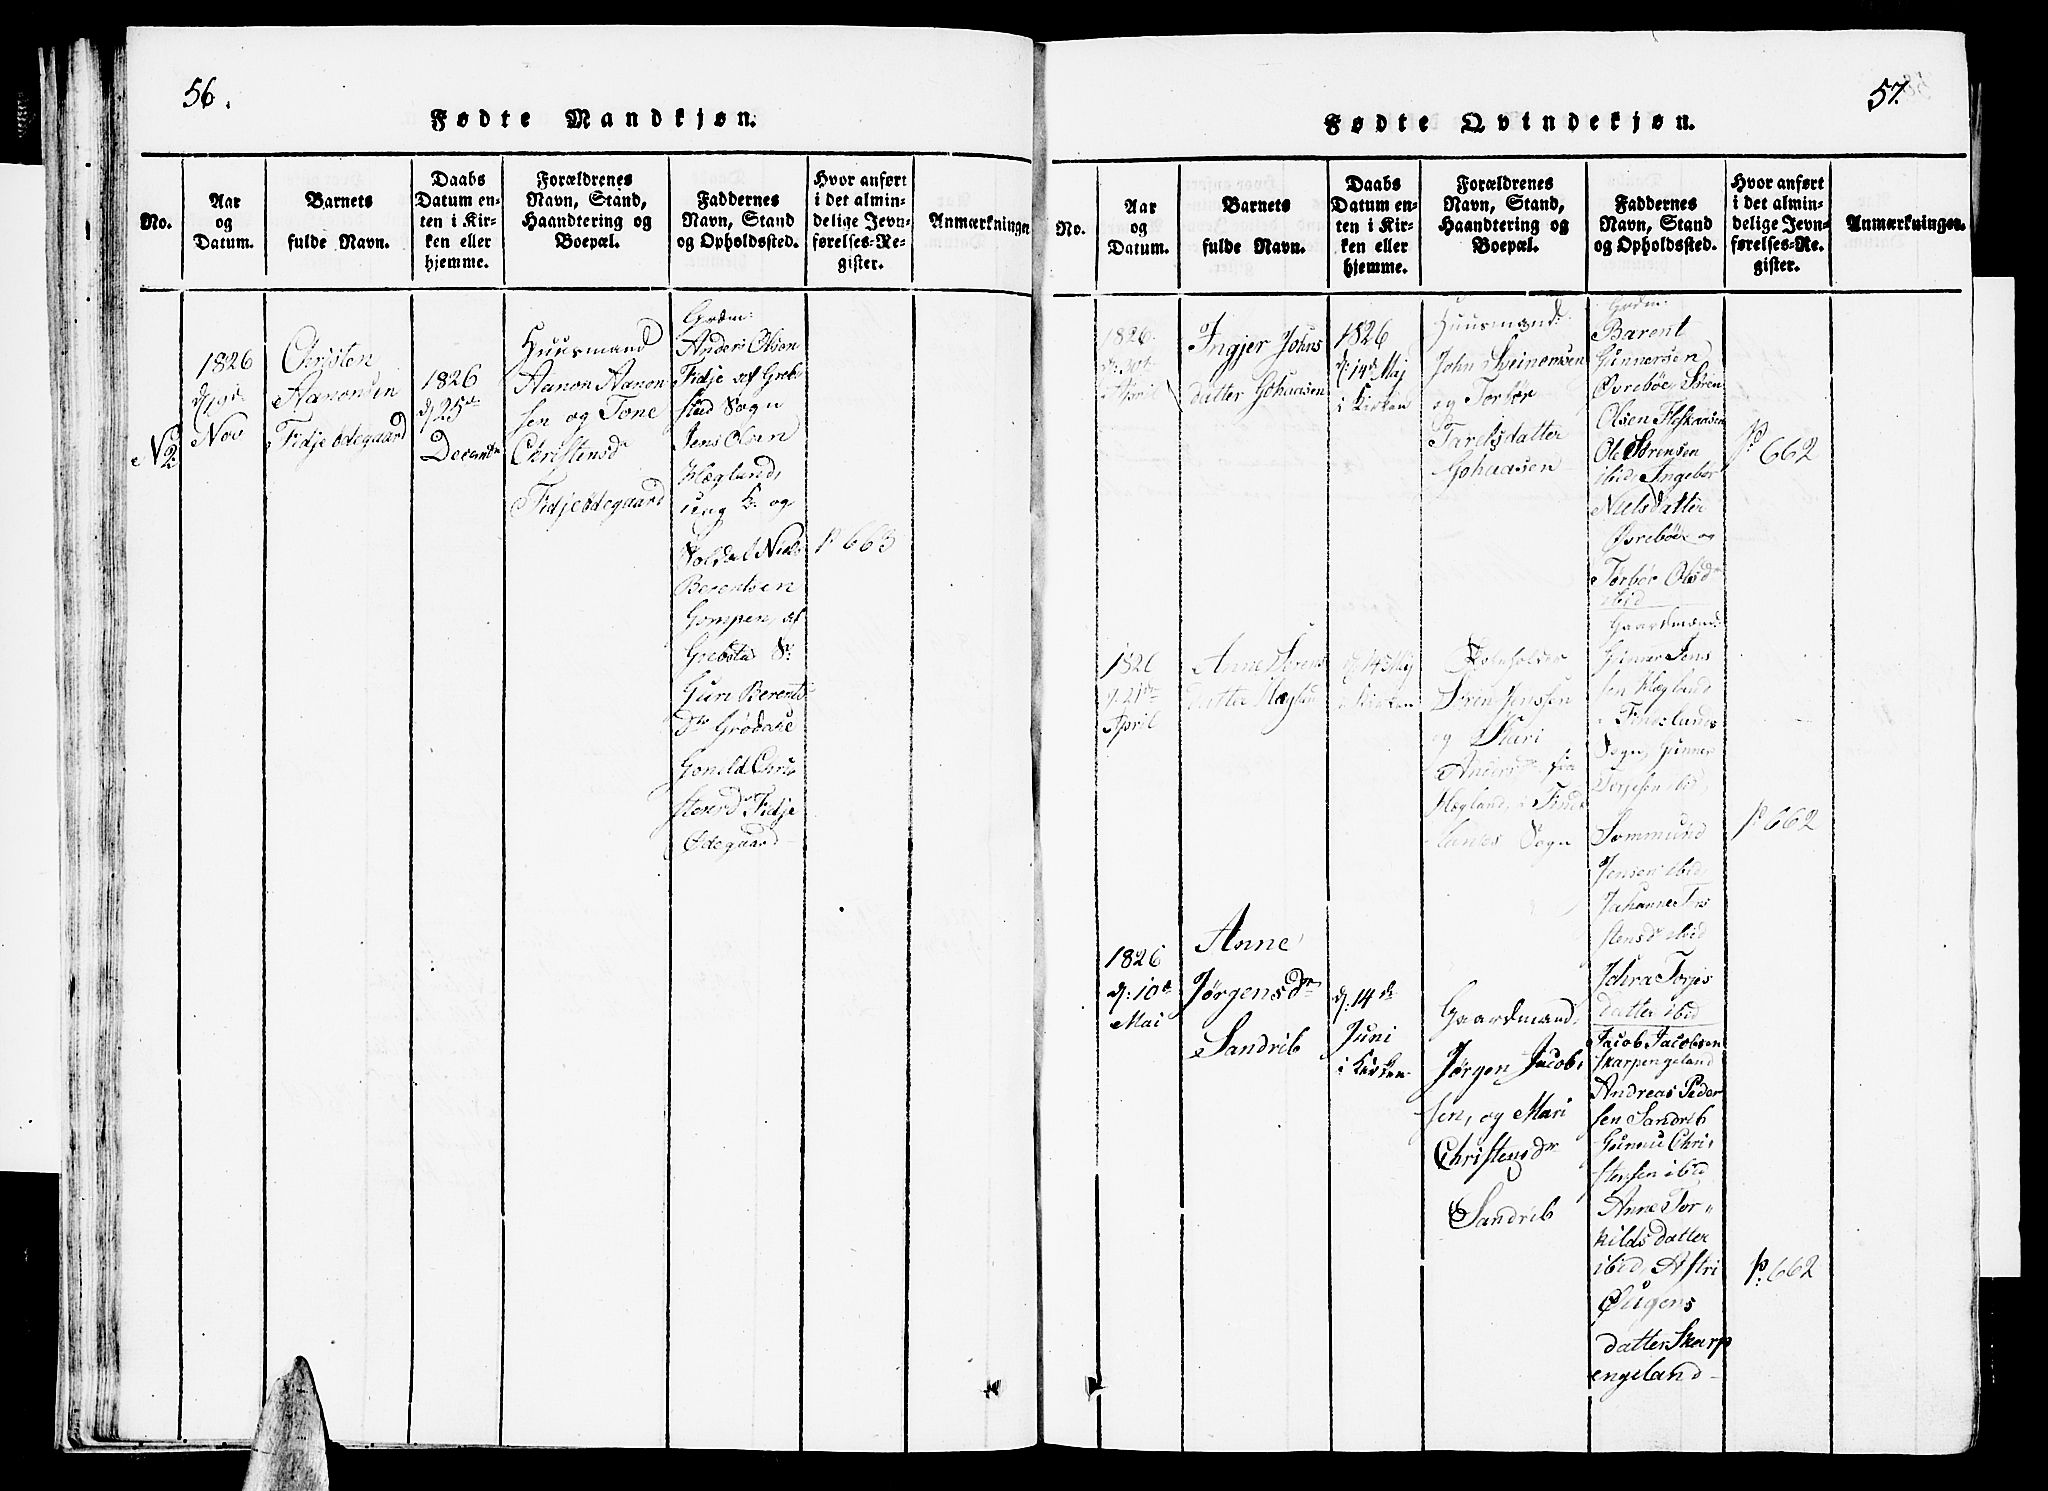 56.
Fødte Mandkjøn.
No.
Aar
og
Datum.
Barnets
fulde Navn.
Daabs
Datum en-
ten i Kir-
ken eller
hjemme.
Forældrenes
Navn, Stand,
Haandtering og
Boepæl.
Faddernes
Navn, Stand
og Opholdssted.
Hvor anført
i det almin-
delige Jevn-
førelses-Re-
gister.
Anmærkninger
N
2
1826
d. 19de
Nov
Christen
Aanonsen
Fidje ødegaard
1826
d 25de
Decembr
Huusmand
Aanon Aanon
sen og Tone
Christensd
Fidjeødegaard
Grdm:
Anders Olson
Fidje af Greb
stad Sogn
Jens Olsen
Hæglund,
ung K. og
Soldat Niels
Berentsen
Gompen, af
Grebsta S:
Guri Berents
dr Grødase
Gonild Chri
stensdr Fidje
Ødegaard
p 663
57.
Fødte Qvindekjøn.
No.
Aar
og
Datum.
Barnets
fulde Navn.
Daabs
Datum en-
ten i Kir-
ken eller
hjemme.
Forældrenes
Navn, Stand,
Haandtering og
Boepæl.
Faddernes
Navn, Stand
og Opholdssted.
Hvor anført
i det almin-
delige Jevn-
førelses-Re-
gister.
Anmærkninger.
1826.
April
Ingjer Johns
datter Gohaasen
1826
d. 14de Maj
i Kirken
Huusmand:
John Sveinønsen
og Torbør
Tarelsdatter
Gohaasen
Grdm:
Barent
Gunnersen
Øvrebøe, Sören
Olsen Fleskaasen
Ole Sörensen
ibid, Ingebor
Nielsdatter
Øvrebøe og
Torbør Olsdr
ibid
p 662
1826
d. 21de
April
Anne Sørens
datter Hægland
d. 14de Maj
i Kirken
Sören Jenssen
og Mari
Andersdr fra
Hægland, i Finds
lands Sogn
Gaardmænd:
Gunner Jens
sen Hægland
i Findslands
Sogn, Gunner
Torjesen ibid,
Tommund
Jensen ibid,
Johanne Tos
stensdr ibid
Torjes
datter ibid
p 662
1826
d: 10de
Mai
Anne
Jørgensdr
Sandrib
d: 14de
Juni
i Kirken
Gaardmand,
Jørgen Jacob,
sen, og Mari
Christensdr
Sandrib
Jacob Jacobsen
Skarpengeland
Andreas Peder
sen Sandrib
Christensen ibid
Anne Tor
kildsdatter
ibid, Astri
Øugens
datter Skarp
engeland
p. 662